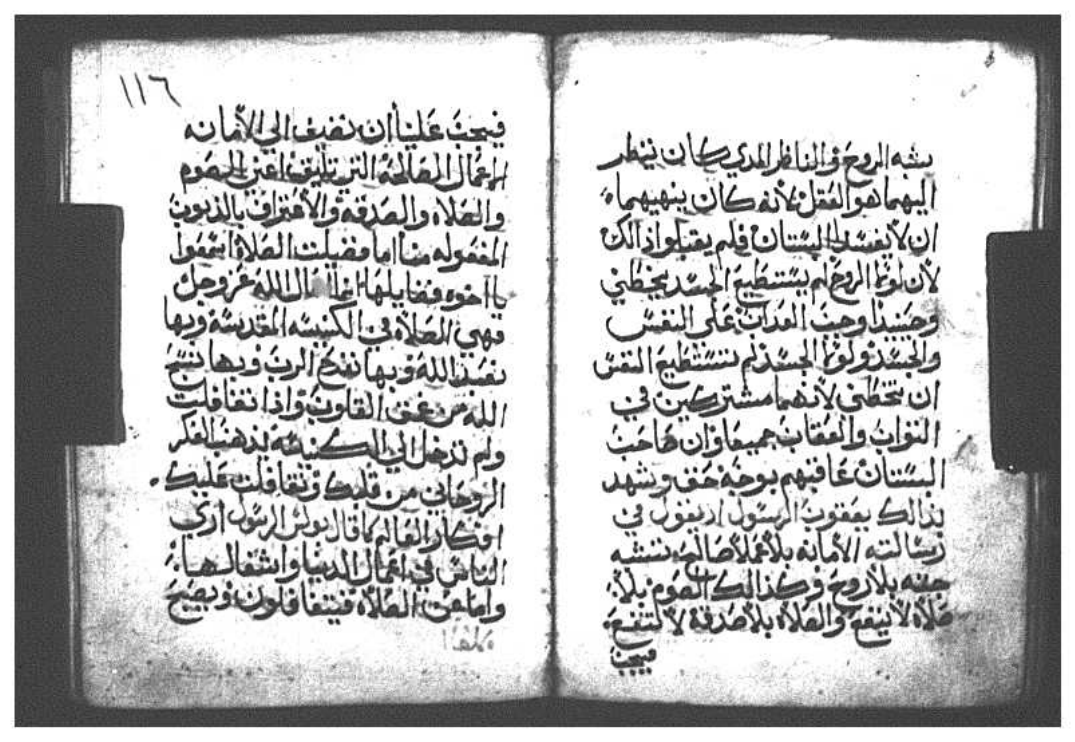 يشبه الروح والناظر الدي كان ينظر
اليهما هو العقل لأنه كان ينهيهما
ان لا يفسدا البستان فلم يقبلوا ذالك
لأن لولا الروح لم يستطيع الجسد يخطي
وحينيذا وجب العداب على النفس
والجسد ولولا الجسد لم تستطيع النفس
ان تخطي لأنهما مشتركين في
التواب والعقاب جميعا وان صاحب
البستان عاقبهم بوجه حق ويشهد
بذالك يعقوب الرسول اد يقول في
رسالته الأمانه بلا أعمال صالحه تشبه
جته بلا روح وكذالك الصوم بلا
صلاه لا ينفع والصلاه بلا صدقة لا تنفع
فيجب
١١٦
فيجب علينا أن نضيف الي الأمانه
الاعمال الصالحه التي تليق اعني الصوم
والصلاه والصدقه والأعتراف بالدنوب
المفعوله منا اما فضيلت الصلاة اسمعوا
يا اخوه فضايلها الله عز وجل
فهي الصلاه في الكنيسه المقدسه وبها
نعبد الله وبها نفدح الرب وبها نسبح
الله من عمق القلوب واذا تغافلت
ولم تدخل الي الكنيسه يدهب الفكر
الروحاني من قلبك وتغافلت عليك
افكار العالم كما قال بولس الرسول اري
الناس في اعمال الدنيا واشغالها
واما عن الصلاه فيتغافلون ويصبح